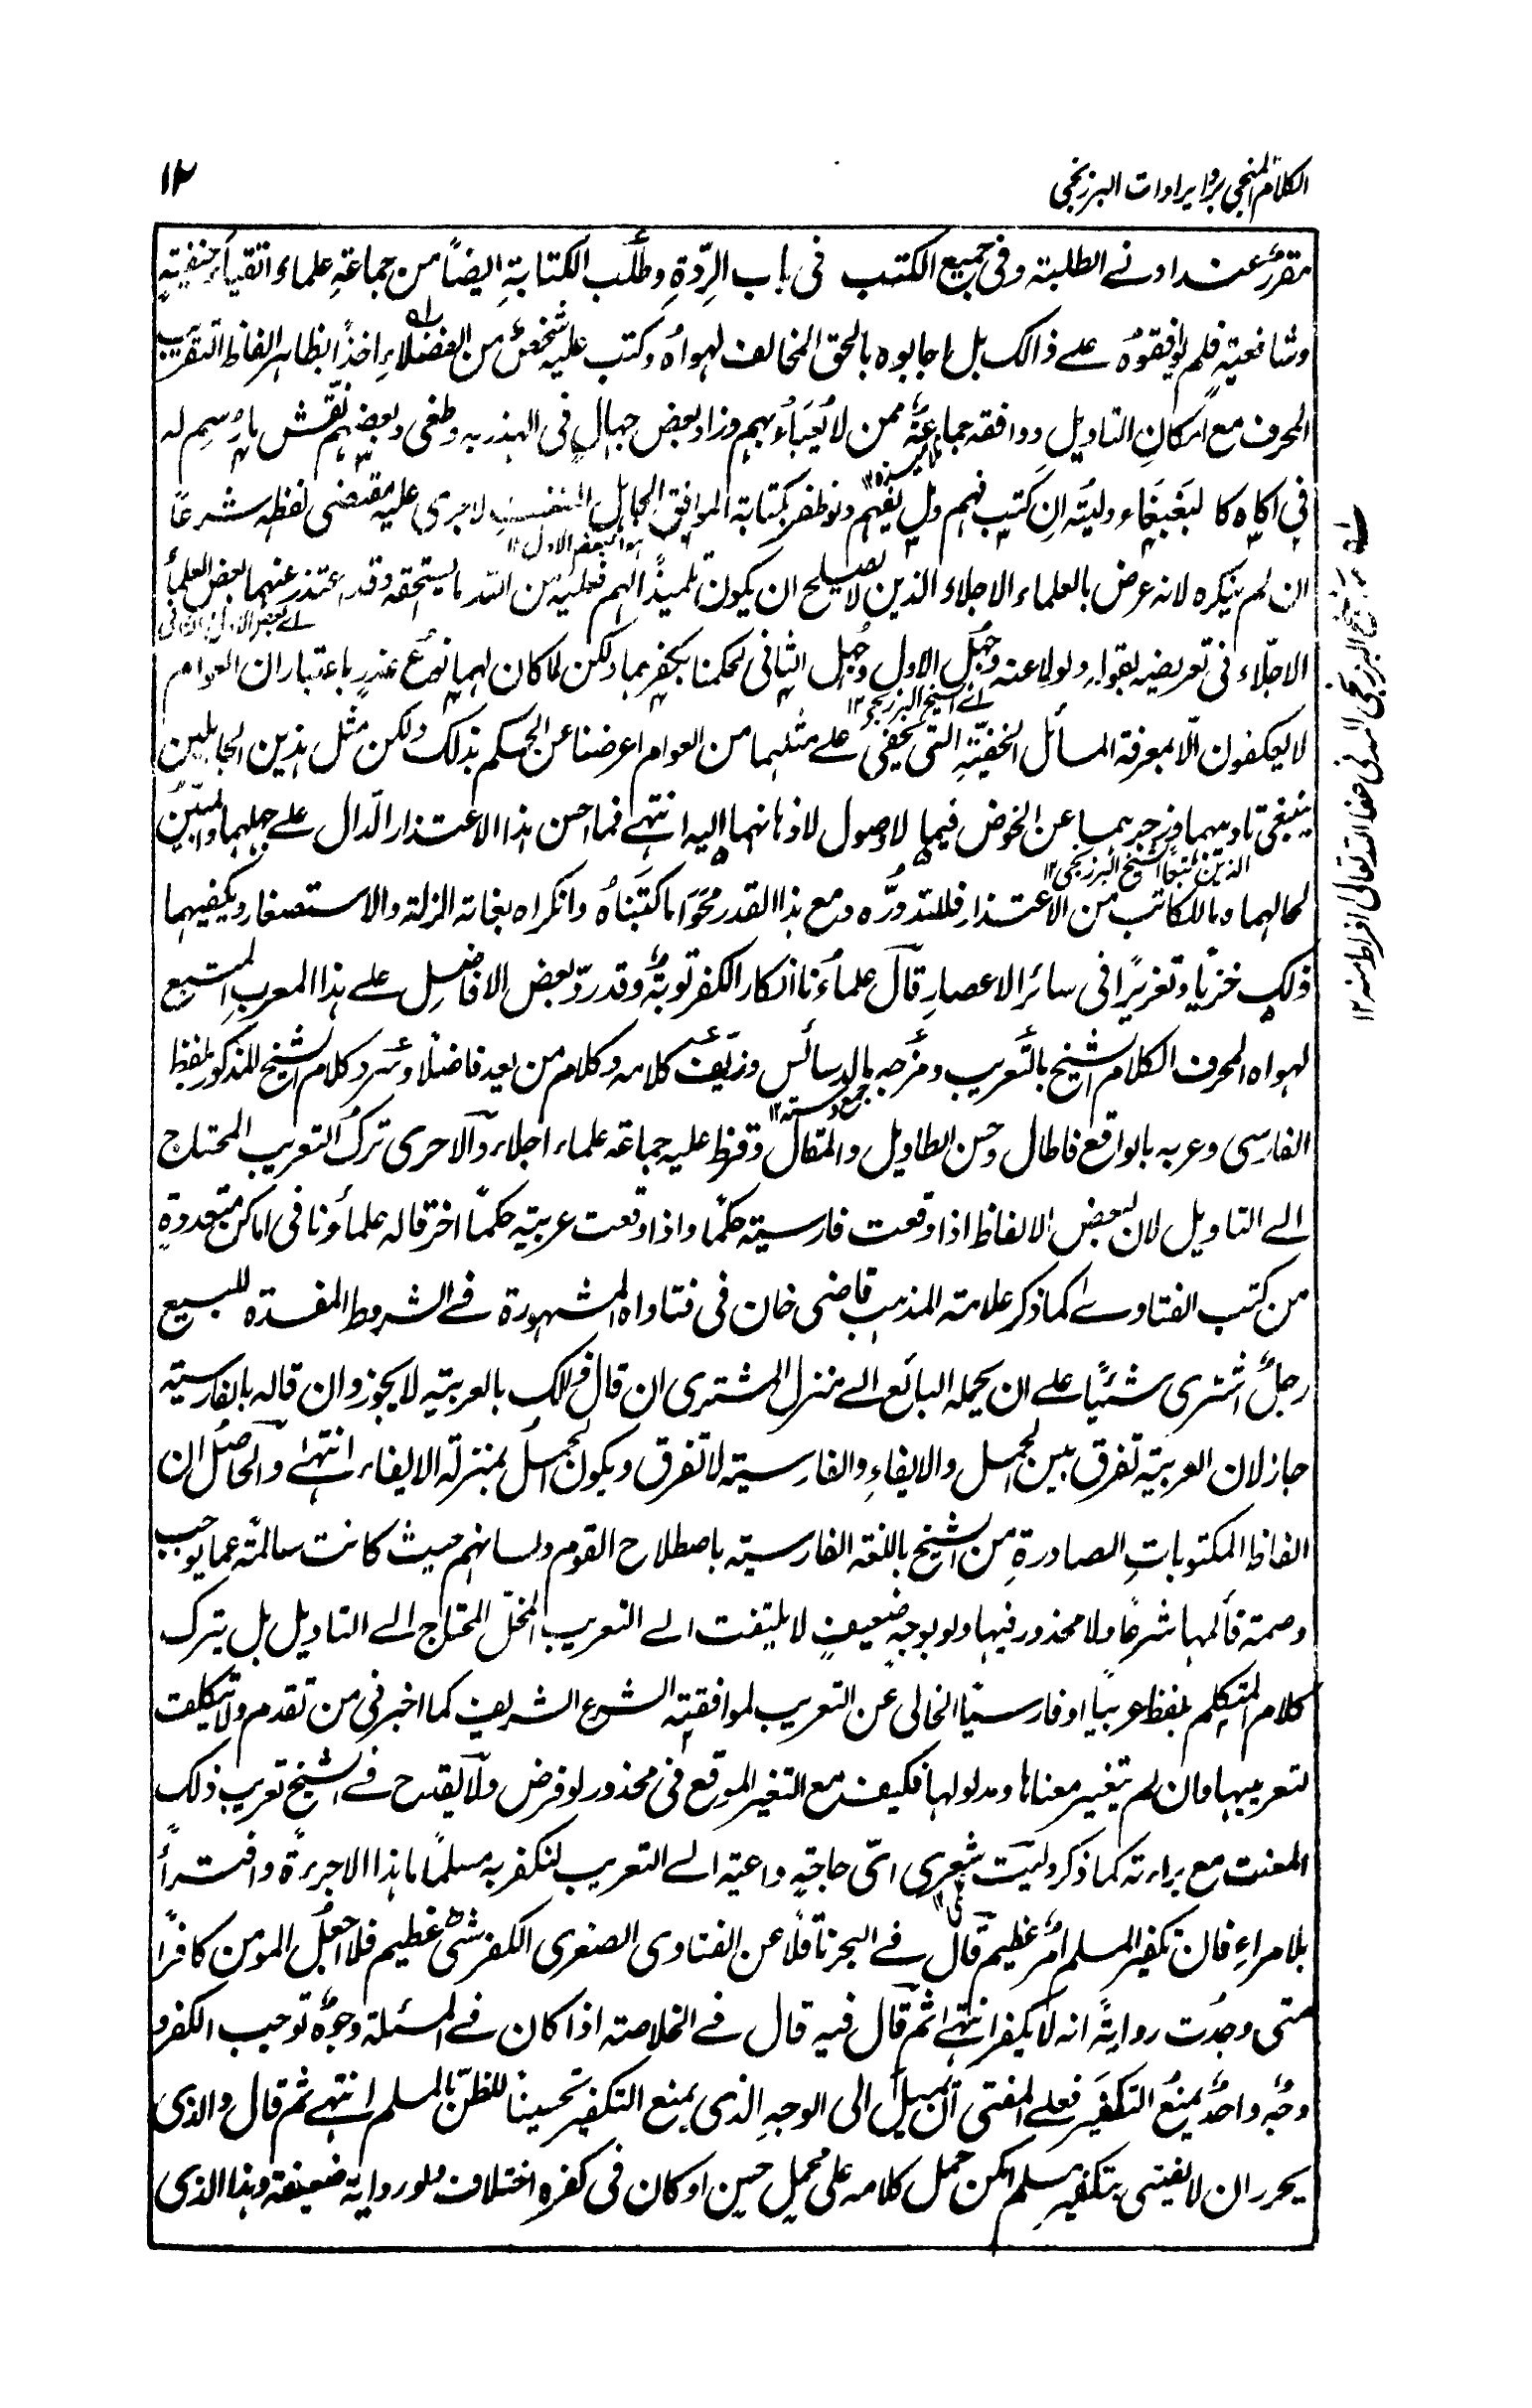 الكلام المنجي برد ايرادات البرزنجي
١٢
مقررٌ عند ادنے الطلبة وفى جميع الكتب فى باب الرِّدّةِ وطلب الكتابةِ ايضاً من جماعةِ علماء اتقياء حنفيةٍ
وشافعيةٍ فلم يوافقوه علے ذالك بل اجابوه بالحق المخالف لهواه وكتب عليه شخصٌ من الفضلاءِ اخذاً بظاهر الفاظ التعريب
المحرف مع امكانِ التاويل ووافقه جماعةٌ ممن لا يُعبَأُ بهم وزاد بعض جهالٍ فى الهذر به وطغى وبعضهم نقش ما رُسِم له
فى اكاه كالبَغبَغاء وليته انِ كتب فهم ولم يفهم ولو ظفر بكتابة الموافق الجاهل لا جرى عليه مقتضى لفظه شرعاً
ان لم ينكره لانه عرض بالعلماء الاجلاء الذين لا يصلح ان يكون تلميذاً لهم فعليه من الله ما يستحقه وقد اعتذر عنهما بعض العلماء
الاجلّاء فى تعريضه بقوله ولولا عته وجهل الاول وجهل الثانى لحكمنا بكفرهما ولكن لما كان لهما نوع عذرٍ باعتبار ان العوام
لا يكفون الّا بمعرفة المسائل الخفيّةِ التى تخفى علے مثلهما من العوام اعرضنا عن الحكم بذلك ولكن مثل هذين الجاهلين
ينبغى تاديبهما وزجرهما عن الخوض فيما لا وصول لاذهانهما اليه انتهے فما احسن هذا الاعتذار الدّال علے جهلهما والمبين
لحالهما وما للكاتب من الاعتذار فلله دُرُّه ومع هذا القدر محوا ما كتبناه وانكراه بغاية الزلة والاستصغار ويكفيهما
ذلك خزياً وتعزيراً فى سائر الاعصارِ قال علماءنا انكار الكفر توبةٌ وقد ردّ بعض الافاضل علے هذا المعربِ المتبع
لهواه المحرف الكلام الشيخ بالتعريب ومزجه بالدسائس وزيّف كلامه وكلام من يعد فاضلاً وسرد كلام الشيخ المذكور بلفظ
الفارسى وعربه بالواقع فاطال وحسن الطاويل والمقال وقرظ عليه جماعة علماء اجلاء والاحرى ترك التعريب المحتاج
الے التاويل لان بعض الالفاظ اذا وقعت فارسية حكماً واذا وقعت عربية حكماً اخر قاله علماؤنا فى اماكن متعددةٍ
من كتب الفتاوے كما ذكر علامة المذهب قاضى خان فى فتاواه المشهورة فے الشروط المفسدة للبيع
رجلٌ اشترى شيئاً علے ان يحمله البائع الے منزل المشترى ان قال ذلك بالعربية لا يجوز وان قاله بالفارسية
جاز لان العربية تفرق بين الحمل والايفاءِ والفارسية لا تفرق ويكون الحمل بمنزلة الايفاء انتهے والحاصل ان
الفاظ المكتوباتِ الصادرةِ من الشيخ باللغة الفارسية باصطلاح القوم ولسانهم حيث كانت سالمة عما يوجب
وصمة قائلها شرعاً ولا محذور فيها ولو بوجهٍ ضعيفٍ لا يلتفت الے التعريب المخلّ المحتاج الے التاويل بل يترك
كلام المتكلم بلفظ عربياً او فارسياً الخالى عن التعريب لموافقة الشرع الشريف كما اخبر فى من تقدم ولا تتكلف
لتعريبها وان لم يتغير معناها ومدلولها فكيف مع التغير الموقع فى محذور لو فرض ولا يقدح فے الشيخ تعريب ذلك
المعنت مع براءته كما ذكر وليت شعرى اىّ حاجةٍ داعية الے التعريب لنكفر به مسلماً ما هذا الا جرءةً وافتراءً
بلا مراءٍ فان تكفير المسلم امرٌ عظيم قال فے البحر ناقلاً عن الفتاوى الصغرى الكفر شئ عظيم فلا اجعل المومن كافراً
متى وجدت روايةً انه لا يكفر انتهے ثم قال فيه قال فے الخلاصة اذا كان فے المسئلة وجوهٌ توجب الكفر و
وجهٌ واحدٌ يمنع التكفير فعلے المفتى ان يميل الى الوجهِ الذى يمنع التكفير تحسيناً للظنّ بالمسلم انتهے ثم قال والذى
يحرر ان لا يفتى بتكفيرِ مسلم امكن حمل كلامه على محمل حسن او كان فى كفره اختلاف ولو رواية ضعيفة وهذا الذى
هو البعض الاول ١٢
اے الشيخ البرزنجى ١٢
الذين تبعا الشيخ البرزنجى ١٢
جمع دسيسة ١٢
البرزنجى المدنى عفا الله تعالى